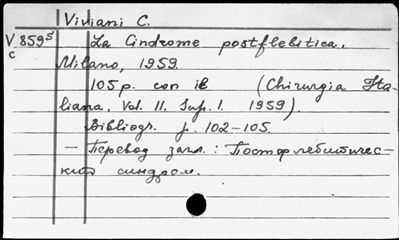 Viviani C.
V 859⁵ La Cindrome postflebitica.
c Milano, 1959.
105 p. con il (Chirurgia Ita-
liana, Vol. 11. Sup. 1. 1959).
Bibliogr. p. 102-105.
— Перевод загл.: Постфлебитичес-
кий синдром.